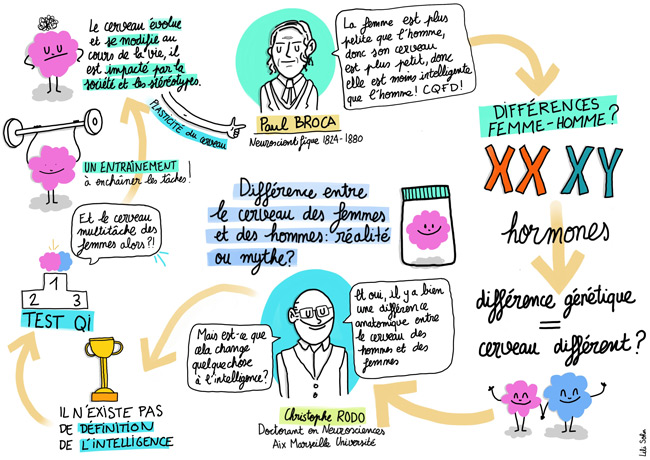 Le cerveau évolue
et se modifie au
cours de la vie, il
est impacté par la
société et les stéréotypes.
PLASTICITÉ du cerveau
Paul BROCA
Neuroscientifique 1824-1880
La femme est plus
petite que l'homme,
donc son cerveau
est plus petit, donc
elle est moins intelligente
que l'homme! CQFD!
DIFFÉRENCES
FEMME-HOMME?
XX XY
hormones
différence génétique
=
cerveau différent?
Différence entre
le cerveau des femmes
et des hommes: réalité
ou mythe?
Et oui, il y a bien
une différence
anatomique entre
le cerveau des
hommes et des
femmes
Mais est-ce que
cela change
quelque chose
à l'intelligence?
Christophe RODO
Doctorant en Neurosciences
Aix Marseille Université
IL N'EXISTE PAS
DE DÉFINITION
DE L'INTELLIGENCE
1
2 3
TEST QI
Et le cerveau
multitâche des
femmes alors?!
UN ENTRAÎNEMENT
à enchaîner les tâches!
Lili Sohn